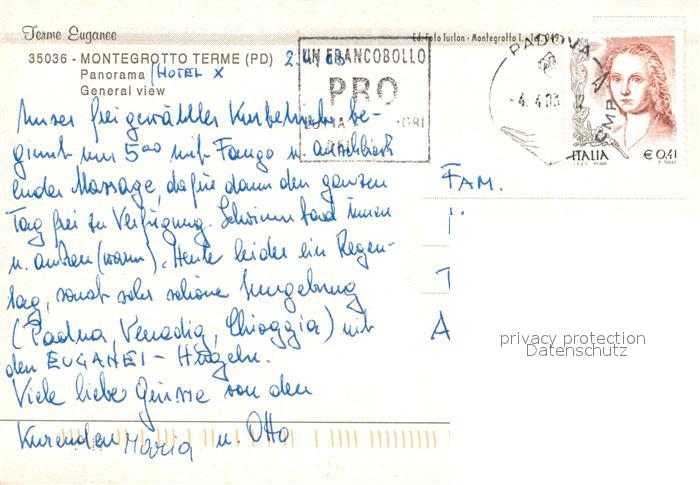 Terme Euganee
Edit. Foto Turlon - Montegrotto T. - Tel. 049
35036 - MONTEGROTTO TERME (PD) 2.4.03
Panorama / HOTEL X
General view
UN FRANCOBOLLO
PRO
PADOVA
-4.4.03
CMP
ITALIA € 0,41
Unser frei gewählter Kurbetrieb be-
ginnt um 5°° mit Fango u. anschließ
ender Massage, dafür dann den ganzen
Tag frei zu Verfügung. Schwimmbad innen
u. außen (warm). Heute leider ein Regen-
tag, sonst sehr schöne Umgebung
(Padua, Venedig, Chioggia) mit
den EUGANEI - Hügeln.
Viele liebe Grüsse von den
Kurenden Maria u. Otto
FAM.
privacy protection
Datenschutz